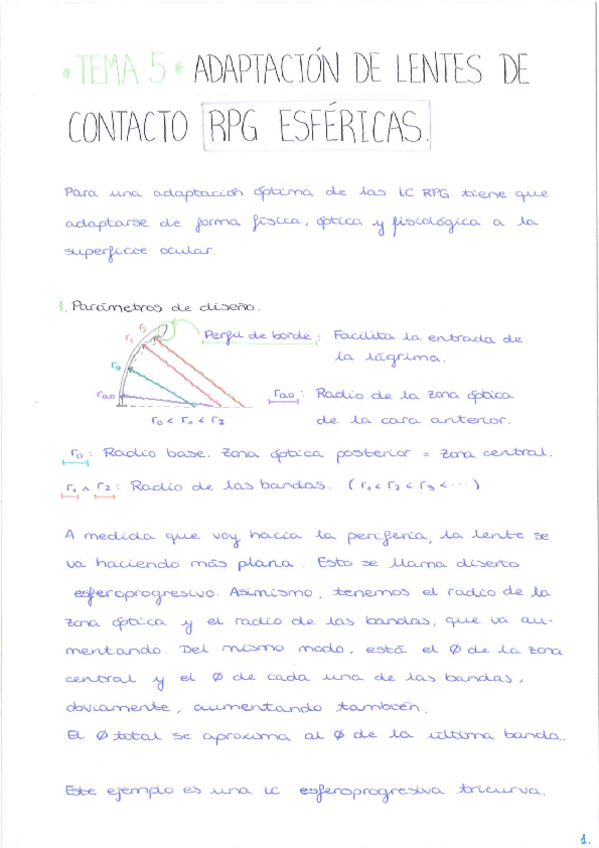 • TEMA 5 • ADAPTACIÓN DE LENTES DE
CONTACTO RPG ESFÉRICAS.
Para una adaptación óptima de las LC RPG tiene que
adaptarse de forma física, óptica y fisiológica a la
superficie ocular.
1. Parámetros de diseño.
r2
r1
r0
ra0
r0 < r1 < r2
Perfil de borde: Facilita la entrada de
la lágrima.
ra0: Radio de la zona óptica
de la cara anterior.
r0: Radio base. Zona óptica posterior = Zona central.
r1 ^ r2: Radio de las bandas. (r1 < r2 < r3 < ...)
A medida que voy hacia la periferia, la lente se
va haciendo más plana. Esto se llama diseño
esferoprogresivo. Asimismo, tenemos el radio de la
zona óptica y el radio de las bandas, que va au-
mentando. Del mismo modo, está el Ø de la zona
central y el Ø de cada una de las bandas,
obviamente, aumentando también.
El Ø total se aproxima al Ø de la última banda.
Este ejemplo es una LC esferoprogresiva tricurva.
1.